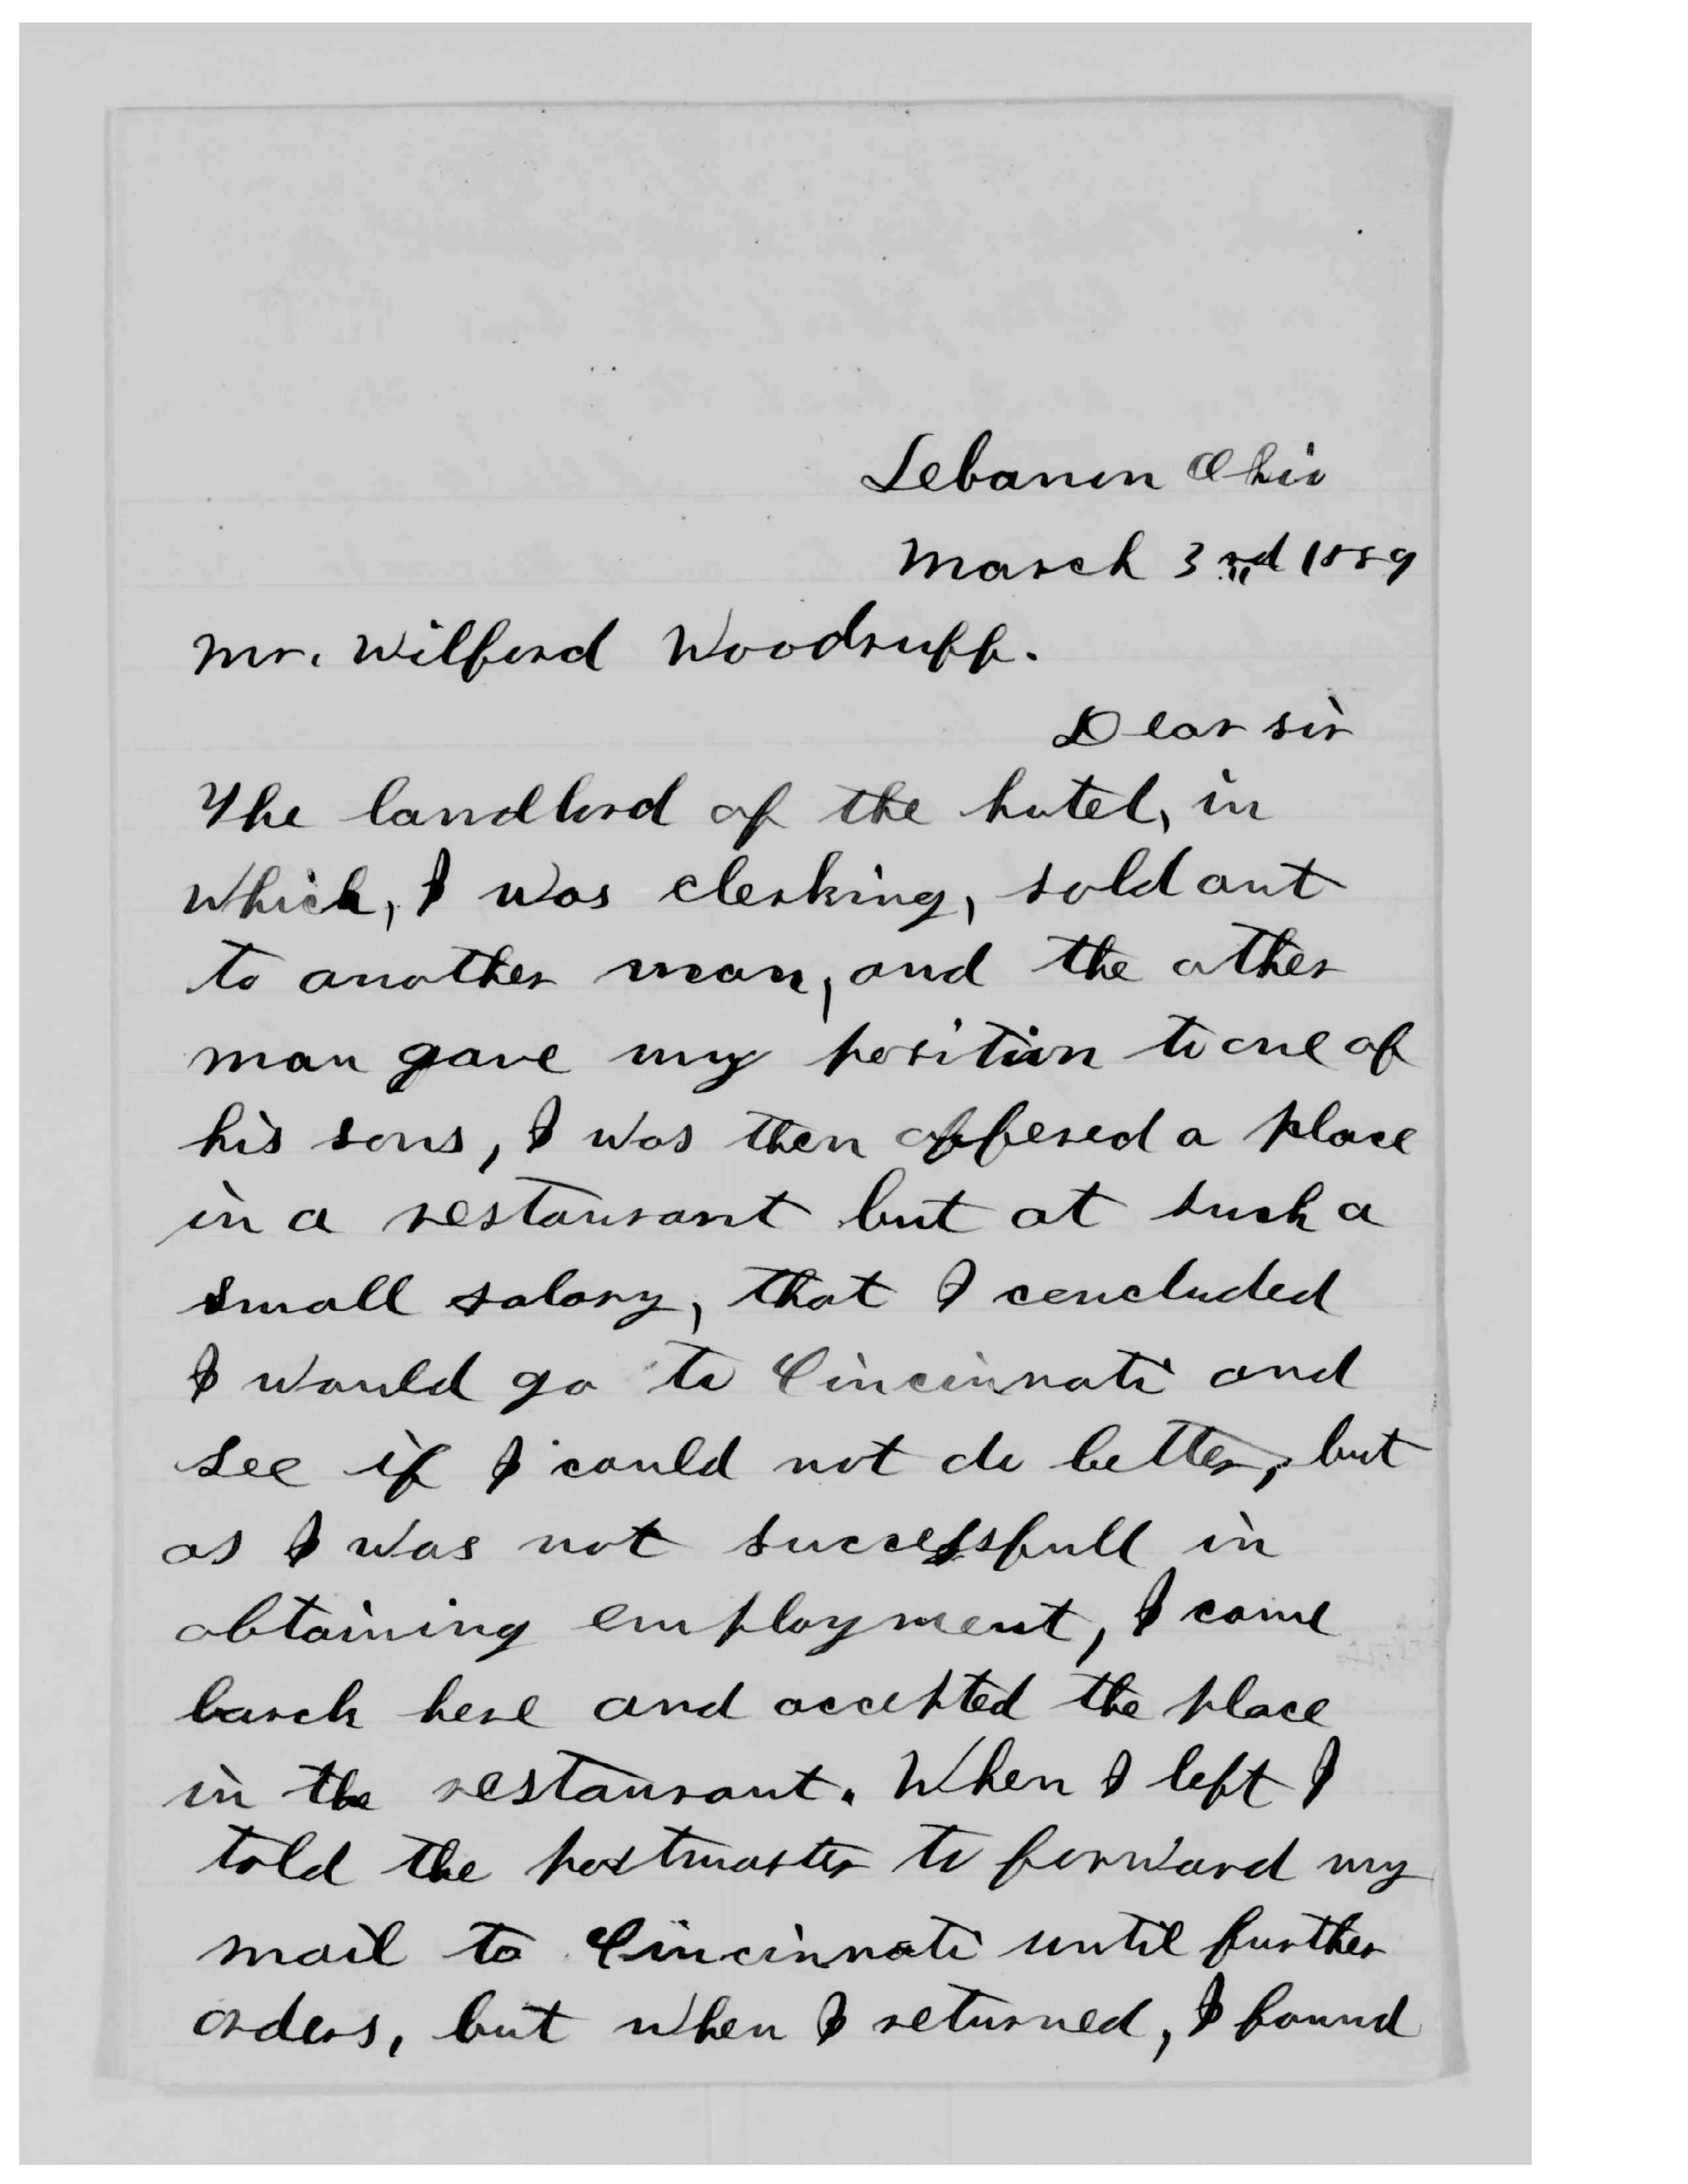 Lebanon Ohio
March 3rd 1889
Mr. Wilford Woodruff.
Dear sir
The landlord of the hotel, in
which, I was clerking, sold out
to another man, and the other
man gave my position to one of
his sons, I was then offered a place
in a restaurant but at such a
small salary, that I concluded
I would go to Cincinnati and
see if I could not do better, but
as I was not successfull in
obtaining employment, I came
back here and accepted the place
in the restaurant. When I left I
told the postmaster to forward my
mail to Cincinnati until further
orders, but when I returned, I found